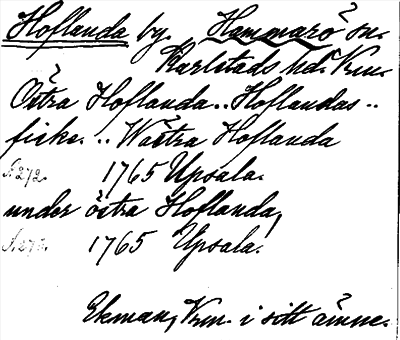 Hoflanda by. Hammarö sn.
Karlstads hd. Vrm.
Östra Hoflanda.. Hoflandas..
fiske. .. Wästra Hoflanda
S. 272. 1765 Upsala.
under östra Hoflanda,
1765 Upsala.
Ekman, Vrm. i sitt ämne.